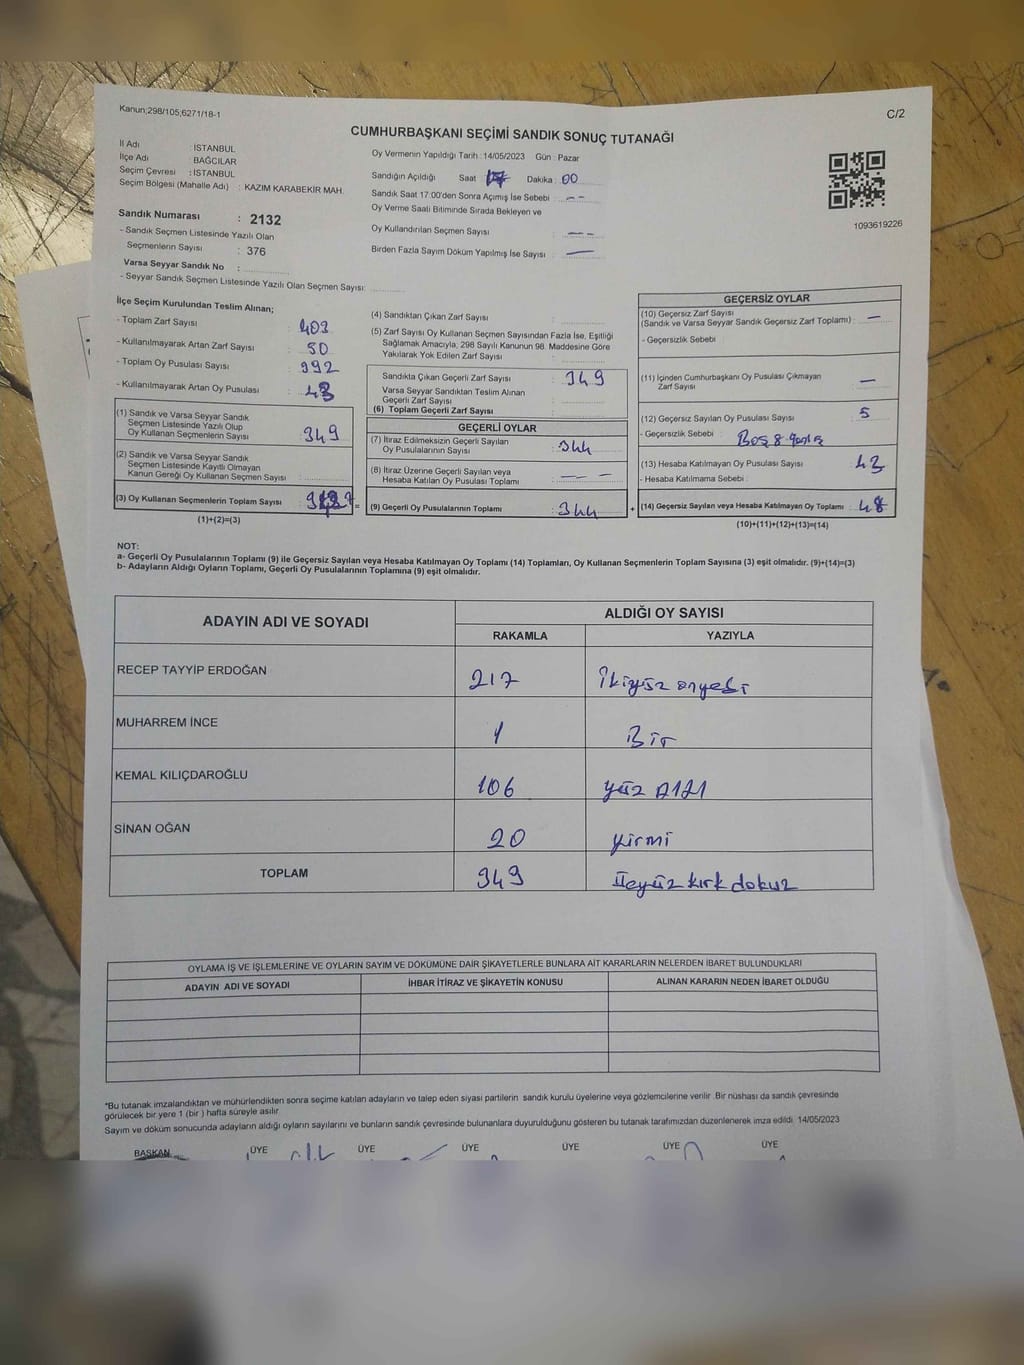 Kanun;298/105,6271/18-1
C/2
CUMHURBAŞKANI SEÇİMİ SANDIK SONUÇ TUTANAĞI
İl Adı : İSTANBUL
İlçe Adı : BAĞCILAR
Seçim Çevresi : İSTANBUL
Seçim Bölgesi (Mahalle Adı) : KAZIM KARABEKİR MAH.
Sandık Numarası : 2132
- Sandık Seçmen Listesinde Yazılı Olan
Seçmenlerin Sayısı : 376
Varsa Seyyar Sandık No :
- Seyyar Sandık Seçmen Listesinde Yazılı Olan Seçmen Sayısı:
Oy Vermenin Yapıldığı Tarih : 14/05/2023 Gün : Pazar
Sandığın Açıldığı Saat 17 Dakika : 00
Sandık Saat 17:00'den Sonra Açımış İse Sebebi : - -
Oy Verme Saati Bitiminde Sırada Bekleyen ve
Oy Kullandırılan Seçmen Sayısı : - -
Birden Fazla Sayım Döküm Yapılmış İse Sayısı : —
1093619226
İlçe Seçim Kurulundan Teslim Alınan;
- Toplam Zarf Sayısı : 403
- Kullanılmayarak Artan Zarf Sayısı : 50
- Toplam Oy Pusulası Sayısı : 392
- Kullanılmayarak Artan Oy Pusulası : 43
(1) Sandık ve Varsa Seyyar Sandık
Seçmen Listesinde Yazılı Olup
Oy Kullanan Seçmenlerin Sayısı : 349
(2) Sandık ve Varsa Seyyar Sandık
Seçmen Listesinde Kayıtlı Olmayan
Kanun Gereği Oy Kullanan Seçmen Sayısı :
(3) Oy Kullanan Seçmenlerin Toplam Sayısı :
(1)+(2)=(3)
(4) Sandıktan Çıkan Zarf Sayısı :
(5) Zarf Sayısı Oy Kullanan Seçmen Sayısından Fazla İse, Eşitliği
Sağlamak Amacıyla; 298 Sayılı Kanunun 98. Maddesine Göre
Yakılarak Yok Edilen Zarf Sayısı :
Sandıkta Çıkan Geçerli Zarf Sayısı : 349
Varsa Seyyar Sandıktan Teslim Alınan
Geçerli Zarf Sayısı :
(6) Toplam Geçerli Zarf Sayısı :
GEÇERLİ OYLAR
(7) İtiraz Edilmeksizin Geçerli Sayılan
Oy Pusulalarının Sayısı : 344
(8) İtiraz Üzerine Geçerli Sayılan veya
Hesaba Katılan Oy Pusulası Toplamı : — —
= (9) Geçerli Oy Pusulalarının Toplamı : 344
GEÇERSİZ OYLAR
(10) Geçersiz Zarf Sayısı
(Sandık ve Varsa Seyyar Sandık Geçersiz Zarf Toplamı) : —
- Geçersizlik Sebebi :
(11) İçinden Cumhurbaşkanı Oy Pusulası Çıkmayan
Zarf Sayısı : —
(12) Geçersiz Sayılan Oy Pusulası Sayısı : 5
- Geçersizlik Sebebi : Boş
(13) Hesaba Katılmayan Oy Pusulası Sayısı : 43
- Hesaba Katılmama Sebebi :
+ (14) Geçersiz Sayılan veya Hesaba Katılmayan Oy Toplamı : 48
(10)+(11)+(12)+(13)=(14)
NOT:
a- Geçerli Oy Pusulalarının Toplamı (9) ile Geçersiz Sayılan veya Hesaba Katılmayan Oy Toplamı (14) Toplamları, Oy Kullanan Seçmenlerin Toplam Sayısına (3) eşit olmalıdır. (9)+(14)=(3)
b- Adayların Aldığı Oyların Toplamı, Geçerli Oy Pusulalarının Toplamına (9) eşit olmalıdır.
ADAYIN ADI VE SOYADI
ALDIĞI OY SAYISI
RAKAMLA YAZIYLA
RECEP TAYYİP ERDOĞAN 217 İkiyüz onyedi
MUHARREM İNCE 1 Bir
KEMAL KILIÇDAROĞLU 106 yüz Altı
SİNAN OĞAN 20 yirmi
TOPLAM 349 üçyüz kırk dokuz
OYLAMA İŞ VE İŞLEMLERİNE VE OYLARIN SAYIM VE DÖKÜMÜNE DAİR ŞİKAYETLERLE BUNLARA AİT KARARLARIN NELERDEN İBARET BULUNDUKLARI
ADAYIN ADI VE SOYADI İHBAR İTİRAZ VE ŞİKAYETİN KONUSU ALINAN KARARIN NEDEN İBARET OLDUĞU
*Bu tutanak imzalandıktan ve mühürlendikten sonra seçime katılan adayların ve talep eden siyasi partilerin sandık kurulu üyelerine veya gözlemcilerine verilir. Bir nüshası da sandık çevresinde
görülecek bir yere 1 (bir ) hafta süreyle asılır.
Sayım ve döküm sonucunda adayların aldığı oyların sayılarını ve bunların sandık çevresinde bulunanlara duyurulduğunu gösteren bu tutanak tarafımızdan düzenlenerek imza edildi. 14/05/2023
BAŞKAN ÜYE ÜYE ÜYE ÜYE ÜYE ÜYE